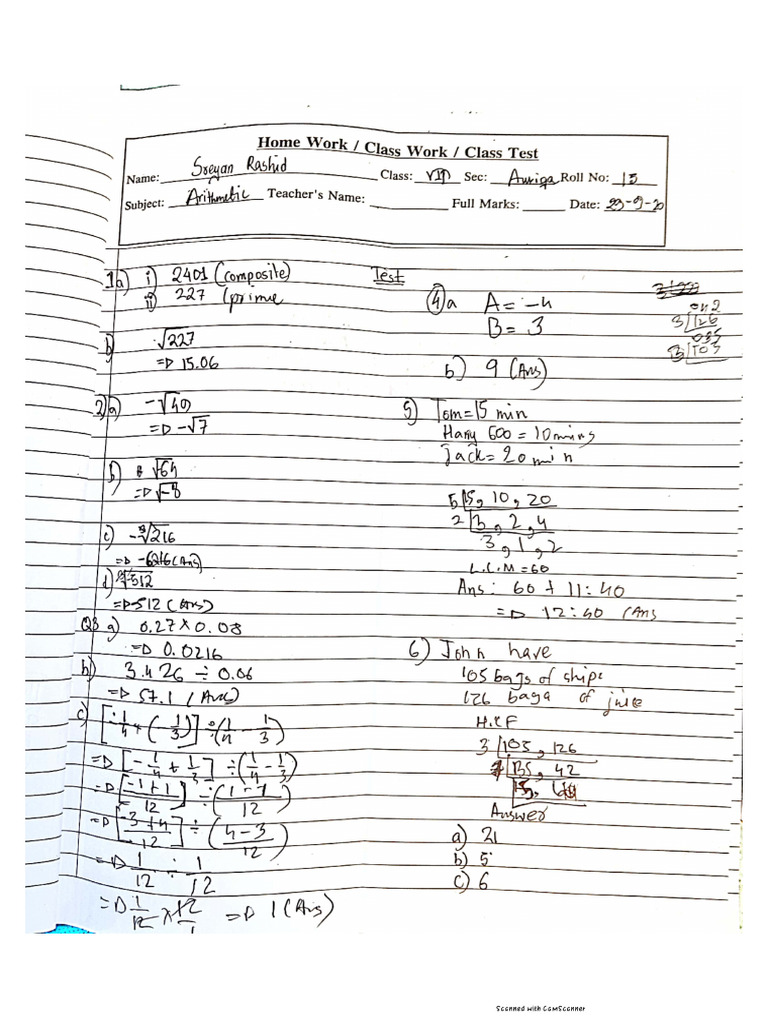 Home Work / Class Work / Class Test
Name: Sreyan Rashid Class: VII Sec: Auriga Roll No: 13
Subject: Arithmetic Teacher's Name: Full Marks: Date: 23-9-20
Test
1a) i) 2401 (composite)
ii) 227 (prime
b) √227
=D 15.06
2)a) -√49
=D -√7
b) √64
=D √-8
c) -³√216
=D -6216 (Ans)
d) ³√-512
=D-512 (Ans)
Q3 a) 0.27 x 0.08
=D 0.0216
b) 3.426 ÷ 0.06
=D 57.1 (Ans)
c) [-1/4 + (-1/3)] ÷ (1/4 - 1/3)
=D [-1/4 + 1/3] ÷ (1/4 - 1/3)
=D [-1+1/12] ÷ (1-1/12)
=D [-3+4/12] ÷ (4-3/12)
=D 1/12 ÷ 1/12
=D 1/12 x 12/1 =D 1 (Ans)
4)a A = -4
B = 3
b) 9 (Ans)
3 126
042
3 105
035
5) Tom = 15 min
Harry 600 = 10 mins
Jack = 20 min
5 15, 10, 20
2 3, 2, 4
3, 1, 2
L.C.M = 60
Ans: 60 + 11:40
=D 12:40 (Ans
6) John have
105 bags of chips
126 bags of juice
H.C.F
3 105, 126
7 35, 42
Answer
a) 21
b) 5
c) 6
Scanned with CamScanner